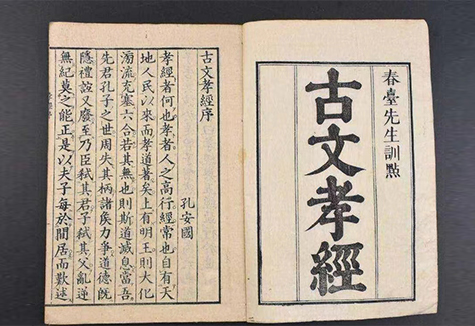 春臺先生訓點
古文孝經
古文孝經序
孔安國
孝經者何也孝者人之高行經常也自有天
地人民以來而孝道著矣上有明王則大化
滂流充塞六合若其無也則斯道滅息當吾
先君孔子之世周失其柄諸侯力爭道德既
隱禮誼又廢至乃臣弒其君子弒其父亂逆
無紀莫之能正是以夫子每於閒居而歎述